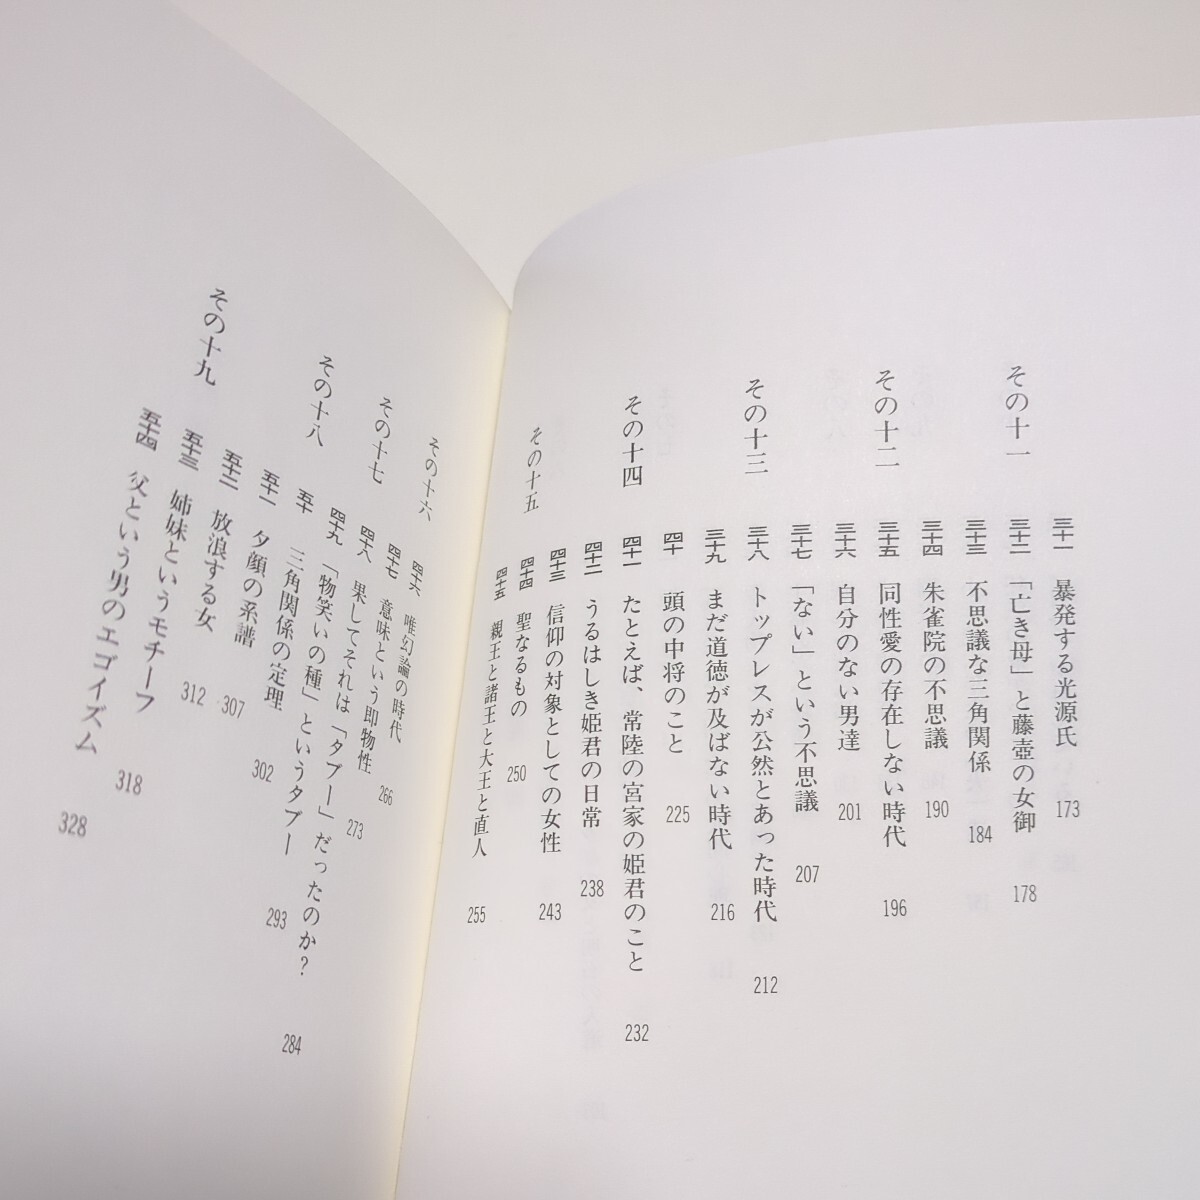 三十一 暴発する光源氏 173
その十一
三十二 「亡き母」と藤壺の女御 178
三十三 不思議な三角関係 184
三十四 朱雀院の不思議 190
その十二
三十五 同性愛の存在しない時代 196
三十六 自分のない男達 201
三十七 「ない」という不思議 207
その十三
三十八 トップレスが公然とあった時代 212
三十九 まだ道徳が及ばない時代 216
四十 頭の中将のこと 225
その十四
四十一 たとえば、常陸の宮家の姫君のこと 232
四十二 うるはしき姫君の日常 238
四十三 信仰の対象としての女性 243
その十五
四十四 聖なるもの 250
四十五 親王と諸王と大王と直人 255
その十六
四十六 唯幻論の時代 266
四十七 意味という即物性 273
その十七
四十八 果してそれは「タブー」だったのか? 284
四十九 「物笑いの種」というタブー 293
その十八
五十 三角関係の定理 302
五十一 夕顔の系譜 307
五十二 放浪する女 312
その十九
五十三 姉妹というモチーフ 318
五十四 父という男のエゴイズム 328